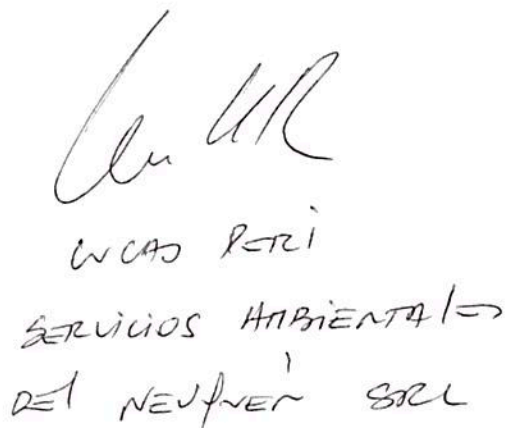 LUCAS PERI
SERVICIOS AMBIENTALES
DEL NEUQUÉN SRL